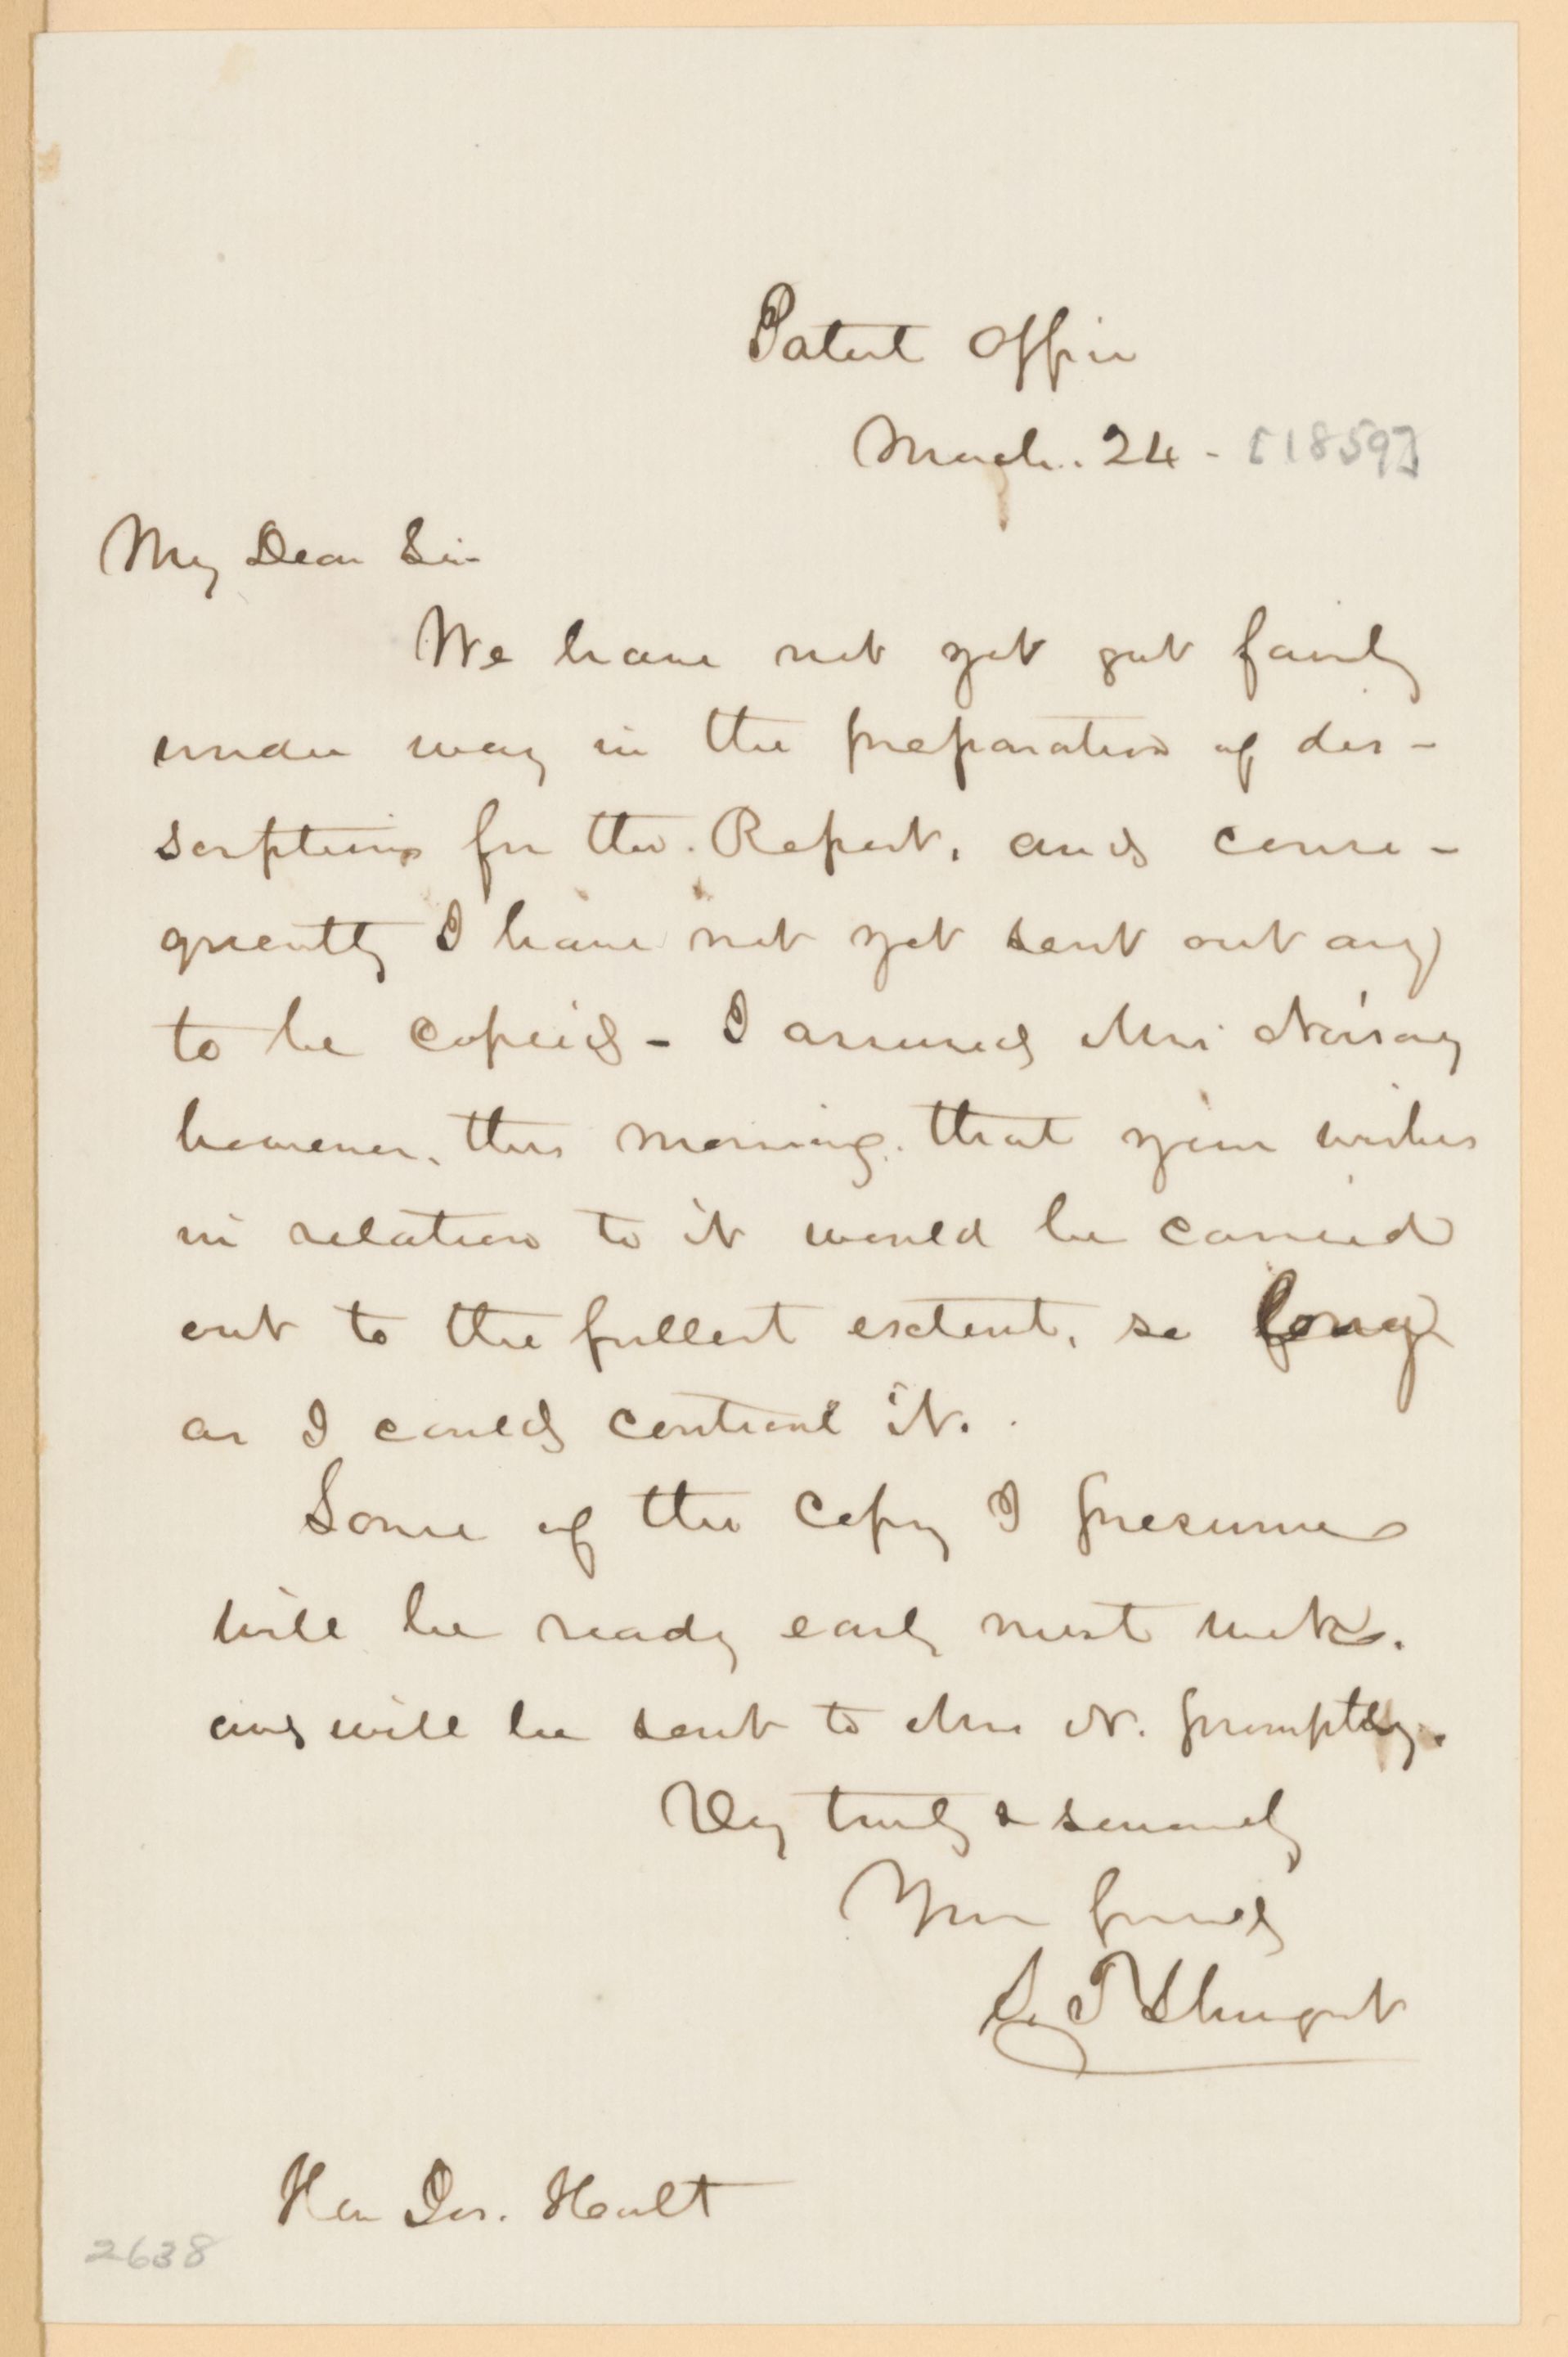 Patent Office
March. 24 - [1859]
My Dear Sir
We have not yet got fairly
under way in the preparation of des-
scriptions for the Report, and conse-
quently I have not yet sent out any
to be copied - I assured Mrs
however, this morning, that your wishes
in relation to it would be carried
out to the fullest extent, so long
as I could control it.
Some of the Copy I presume
will be ready early next week.
and will be sent to Mrs N. promptly.
Very truly & sincerely
Your friend
S. T. Shugert
Hon Jos. Hoult
2638